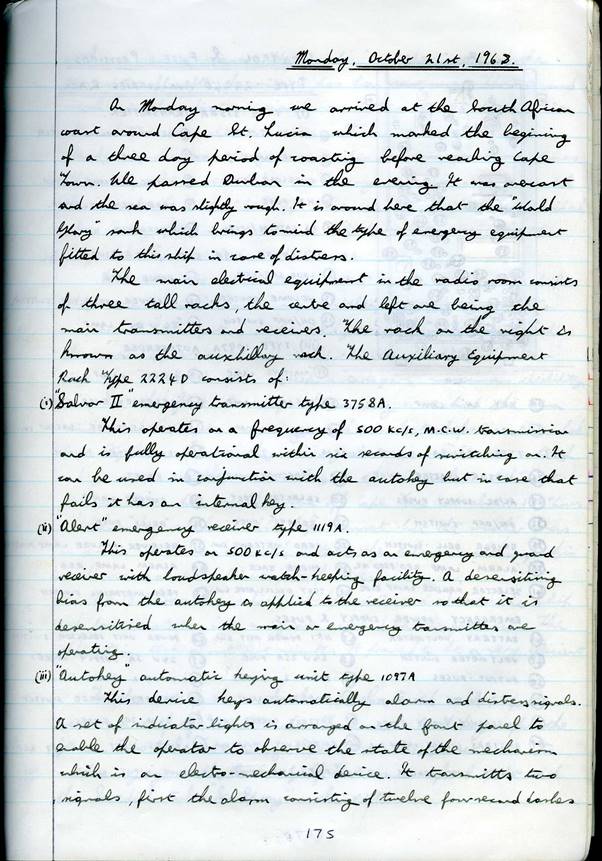 Monday, October 21st, 1963.
On Monday morning we arrived at the South African
coast around Cape St. Lucia which marked the begining
of a three day period of coasting before reaching Cape
Town. We passed Durban in the evening. It was overcast
and the sea was slightly rough. It is around here that the "World
Glory" sank which brings to mind the type of emergency equipment
fitted to this ship in case of distress.
The main electrical equipment in the radio room consists
of three tall racks, the centre and left one being the
main transmitters and receivers. The rack on the right is
known as the auxhillary rack. The Auxiliary Equipment
Rack Type 2224D consists of:
(i) "Salvor II" emergency transmitter type 3758A.
This operates on a frequency of 500 kc/s, M.C.W. transmission
and is fully operational within six seconds of switching on. It
can be used in conjunction with the autokey but in case that
fails it has an internal key.
(ii) "Alert" emergency receiver type 1119A.
This operates on 500 kc/s and acts as an emergency and guard
receiver with loudspeaker watch-keeping facility. A desensitising
bias from the autokey is applied to the receiver so that it is
desensitised when the main or emergency transmitters are
operating.
(iii) "Autokey" automatic keying unit type 1097A
This device keys automatically alarm and distress signals.
A set of indicator lights is arranged on the front panel to
enable the operator to observe the state of the mechanism
which is an electro-mechanical device. It transmitts two
signals, first the alarm consisting of twelve four second dashes
175